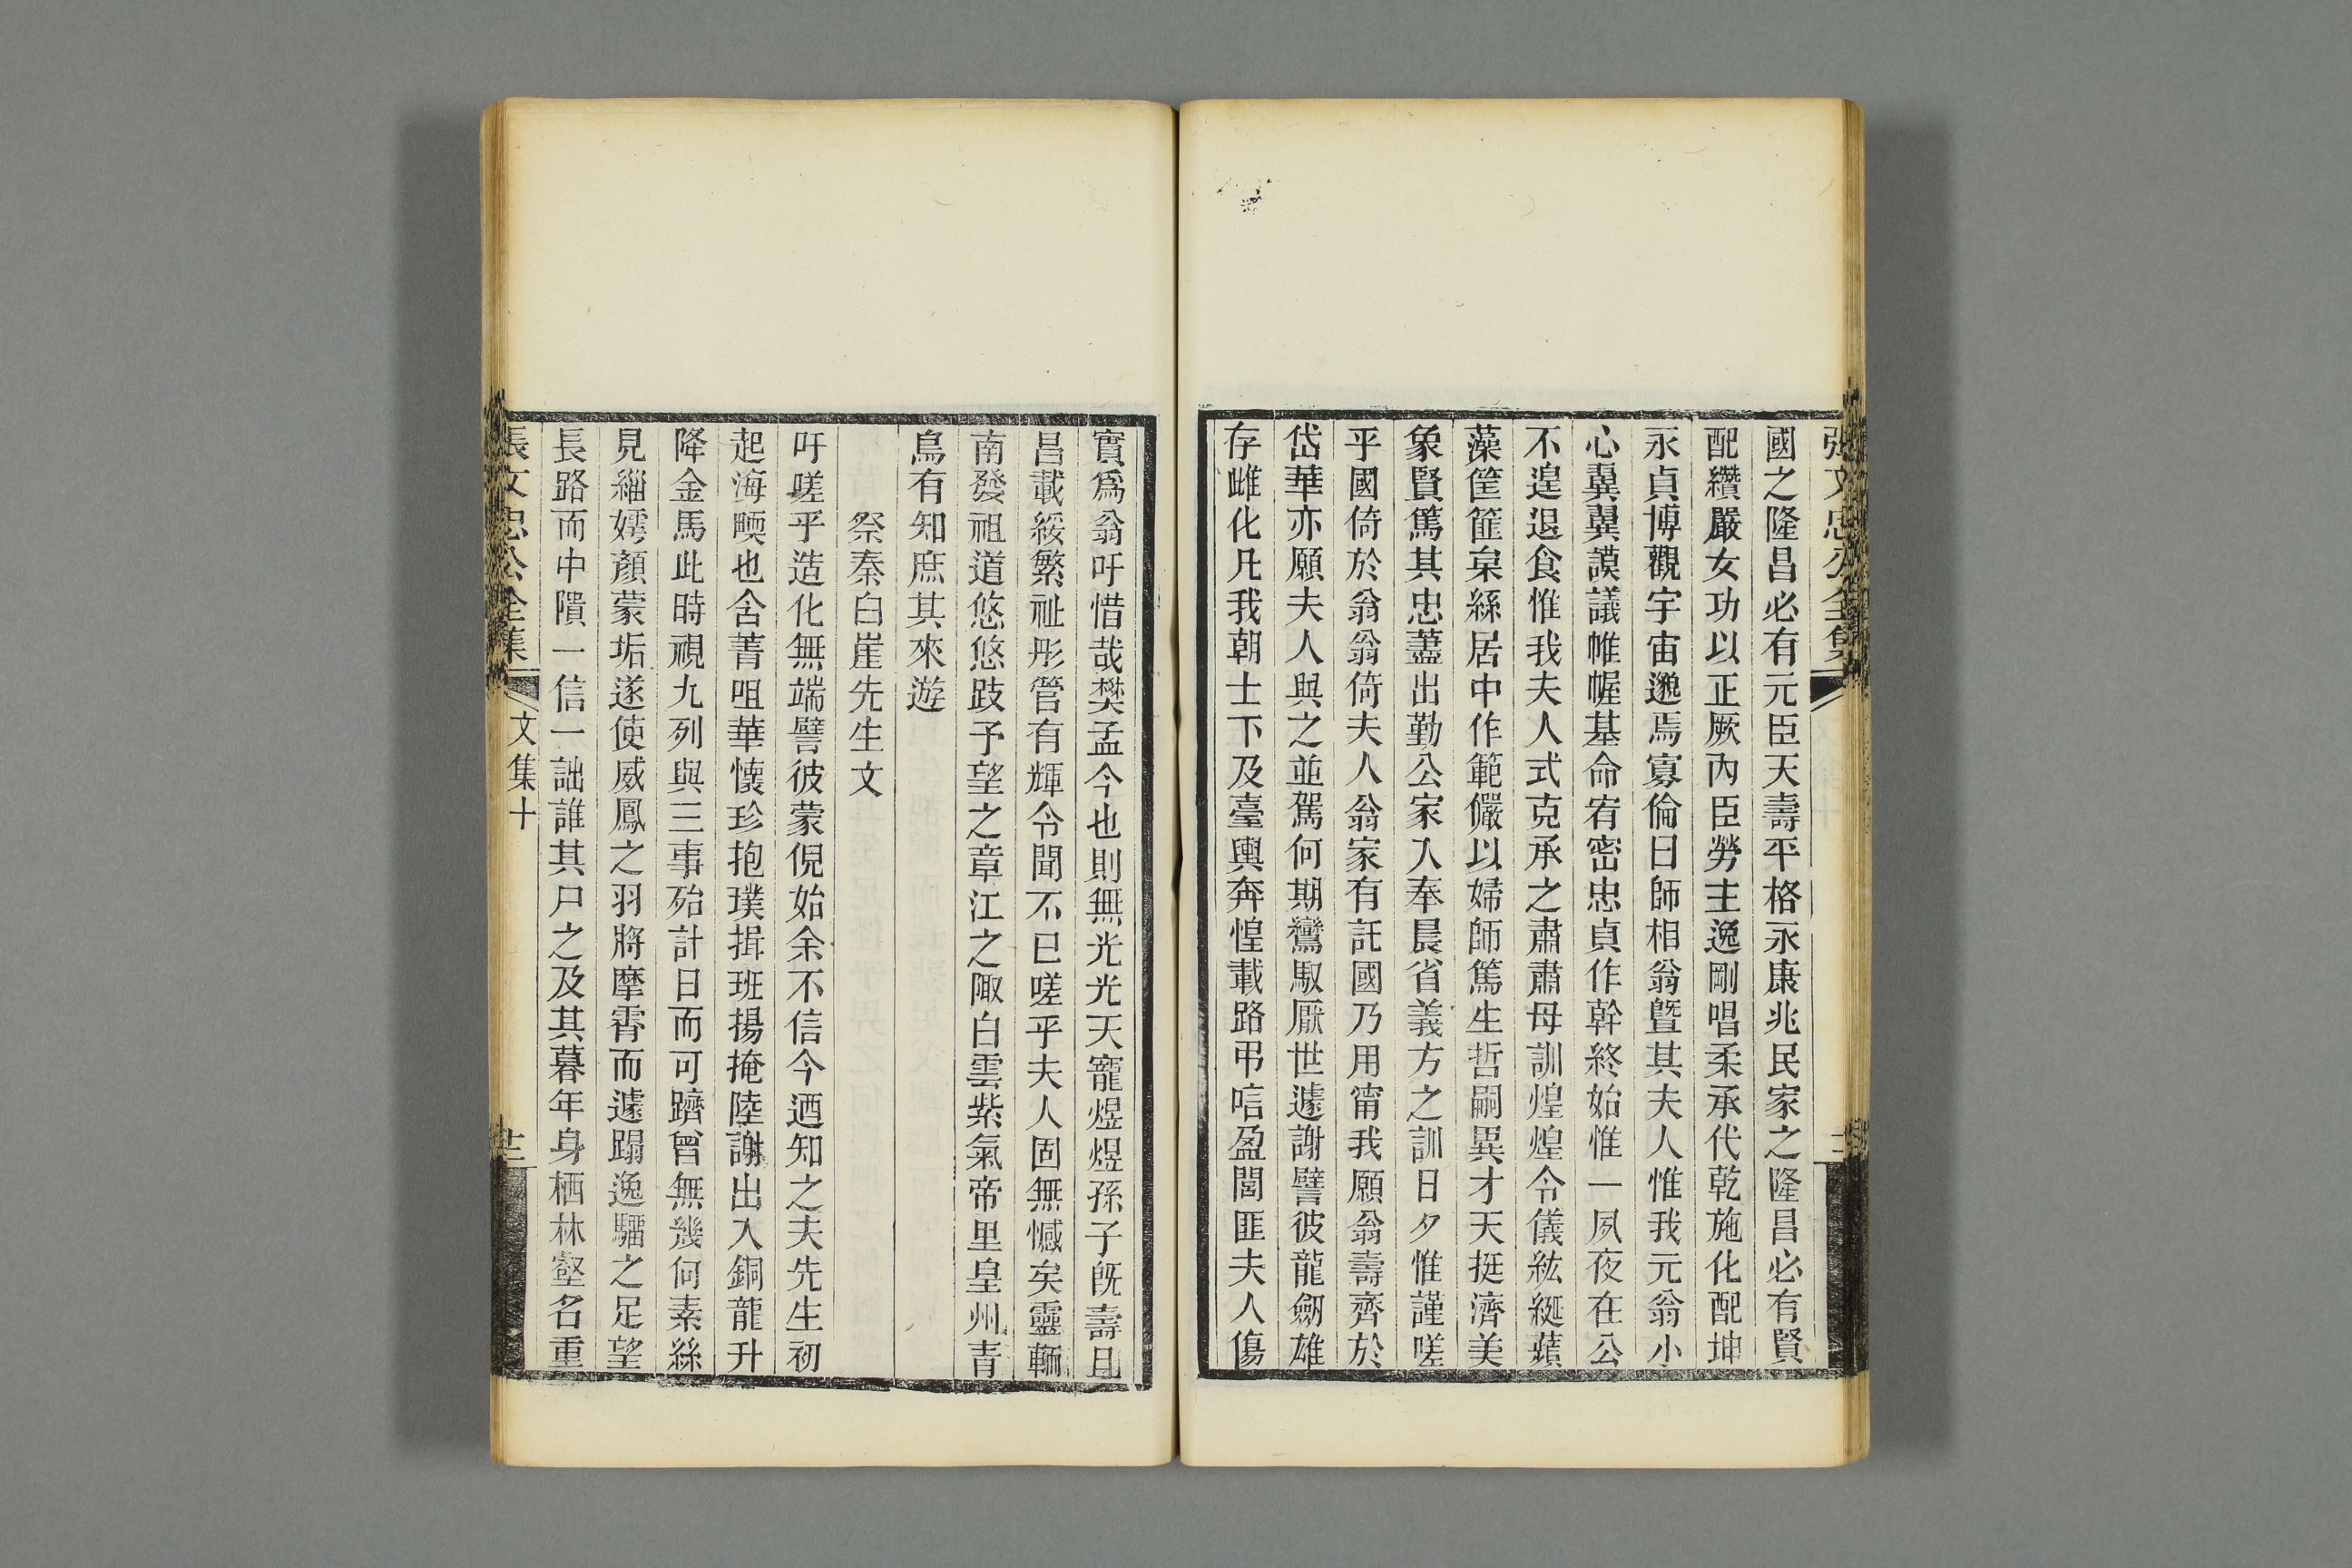 張文忠公全集
國之隆昌必有元臣天壽平格永康兆民家之隆昌必有賢
配纘嚴女功以正厥內臣勞主逸剛唱柔承代乾施化配坤
永貞博觀宇宙邈焉寡倫曰師相翁曁其夫人惟我元翁小
心翼翼謨議帷幄基命宥密忠貞作幹終始惟一夙夜在公
不遑退食惟我夫人式克承之肅肅母訓煌煌令儀紘綖蘋
藻筐筐枲絲居中作範儼以婦師篤生哲嗣異才天挺濟美
象賢篤其忠藎出勤公家入奉晨省義方之訓日夕惟謹嗟
乎國倚於翁翁倚夫人翁家有託國乃用甯我願翁壽齊於
岱華亦願夫人與之並駕何期鸞馭厭世遽謝譬彼龍劒雄
存雌化凡我朝士下及臺輿奔惶載路弔唁盈閭匪夫人傷
實爲翁吁惜哉樊孟今也則無光光天寵煜煜孫子旣壽且
昌載綏繁祉彤管有輝令聞不已嗟乎夫人固無憾矣靈輀
南發祖道悠悠跂予望之章江之陬白雲紫氣帝里皇州靑
鳥有知庶其來遊
祭秦白崖先生文
吁嗟乎造化無端譬彼蒙倪始余不信今迺知之夫先生初
起海畹也含菁咀華懷珍抱璞揖班揚掩陸謝出入銅龍升
降金馬此時視九列與三事殆計日而可躋曾無幾何素絲
見緇嫮顏蒙垢遂使威鳳之羽將摩霄而遽蹋逸驑之足望
長路而中隤一信一詘誰其尸之及其暮年身栖林壑名重
張文忠公全集
文集十